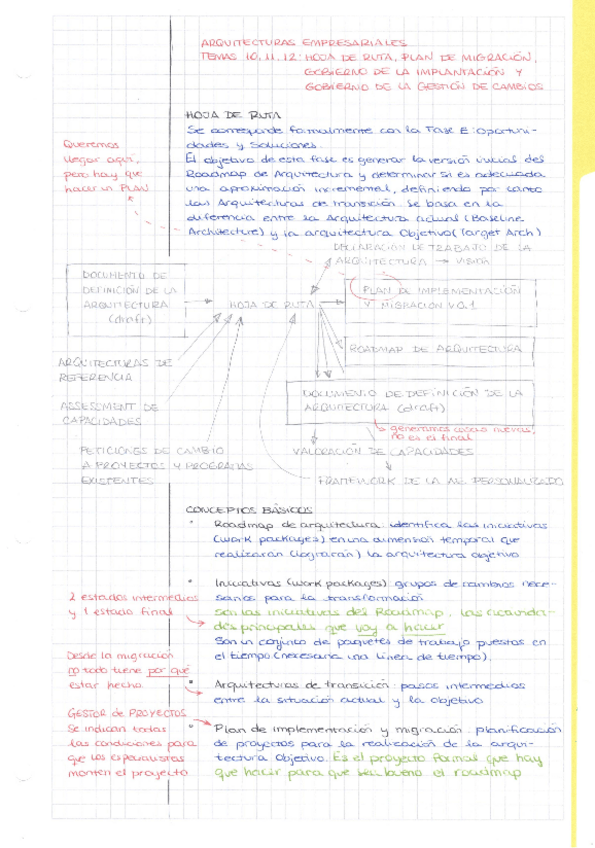 ARQUITECTURAS EMPRESARIALES
TEMAS 10, 11, 12: HOJA DE RUTA, PLAN DE MIGRACIÓN,
GOBIERNO DE LA IMPLANTACIÓN Y
GOBIERNO DE LA GESTIÓN DE CAMBIOS
HOJA DE RUTA
Se corresponde formalmente con la Fase E: Oportuni-
dades y Soluciones.
El objetivo de esta fase es generar la versión inicial del
Roadmap de Arquitectura y determinar si es adecuada
una aproximación incremental, definiendo por tanto
las Arquitecturas de transición. Se basa en la
diferencia entre la Arquitectura actual (Baseline
Architecture) y la arquitectura Objetivo (Target Arch)
Queremos
llegar aquí,
pero hay que
hacer un PLAN
DECLARACIÓN DE TRABAJO DE LA
ARQUITECTURA → VISIÓN
DOCUMENTO DE
DEFINICIÓN DE LA
ARQUITECTURA
(draft)
HOJA DE RUTA
PLAN DE IMPLEMENTACIÓN
Y MIGRACIÓN V0.1
ROADMAP DE ARQUITECTURA
ARQUITECTURAS DE
REFERENCIA
DOCUMENTO DE DEFINICIÓN DE LA
ARQUITECTURA (draft)
ASSESSMENT DE
CAPACIDADES
generamos cosas nuevas,
no es el final
PETICIONES DE CAMBIO
A PROYECTOS Y PROGRAMAS
EXISTENTES
VALORACIÓN DE CAPACIDADES
FRAMEWORK DE LA AE PERSONALIZADO
CONCEPTOS BÁSICOS
• Roadmap de arquitectura: identifica las iniciativas
(work packages) en una dimensión temporal que
realizarán (lograrán) la arquitectura objetivo
• Iniciativas (work packages): grupos de cambios nece-
sarios para la transformación
Son las iniciativas del Roadmap, las
des principales que voy a hacer
Son un conjunto de paquetes de trabajo puestos en
el tiempo (necesaria una línea de tiempo).
2 estados intermedios
y 1 estado final
Desde la migración
no todo tiene por qué
estar hecho
• Arquitecturas de transición: pasos intermedios
entre la situación actual y la objetivo
GESTOR de PROYECTOS
Se indican todas
las condiciones para
que los especialistas
monten el proyecto
• Plan de implementación y migración: planificación
de proyectos para la realización de la arqui-
tectura Objetivo. Es el proyecto formal que hay
que hacer para que sea bueno el roadmap